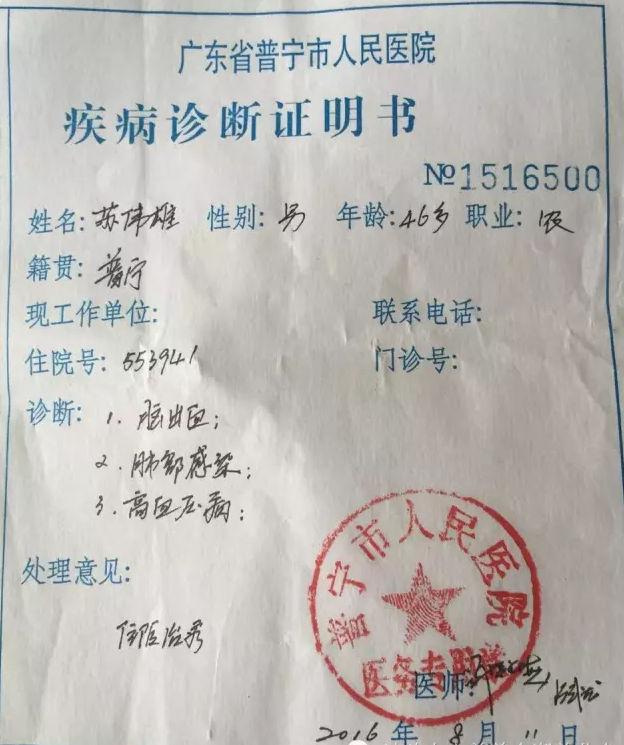 广东省普宁市人民医院
疾病诊断证明书
№1516500
姓名: 苏伟雄 性别: 男 年龄: 46岁 职业: 农
籍贯: 普宁
现工作单位: 联系电话:
住院号: 553941 门诊号:
诊断: 1. 脑出血;
2. 肺部感染;
3. 高血压病;
处理意见:
住院治疗
普宁市人民医院
医务专用章
医师:
2016 年 8 月 11 日